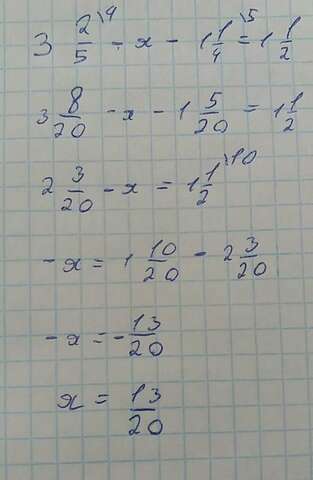 3 2/5 \4 - x - 1 1/4 \5 = 1 1/2
3 8/20 - x - 1 5/20 = 1 1/2
2 3/20 - x = 1 1/2 \10
-x = 1 10/20 - 2 3/20
-x = -13/20
x = 13/20